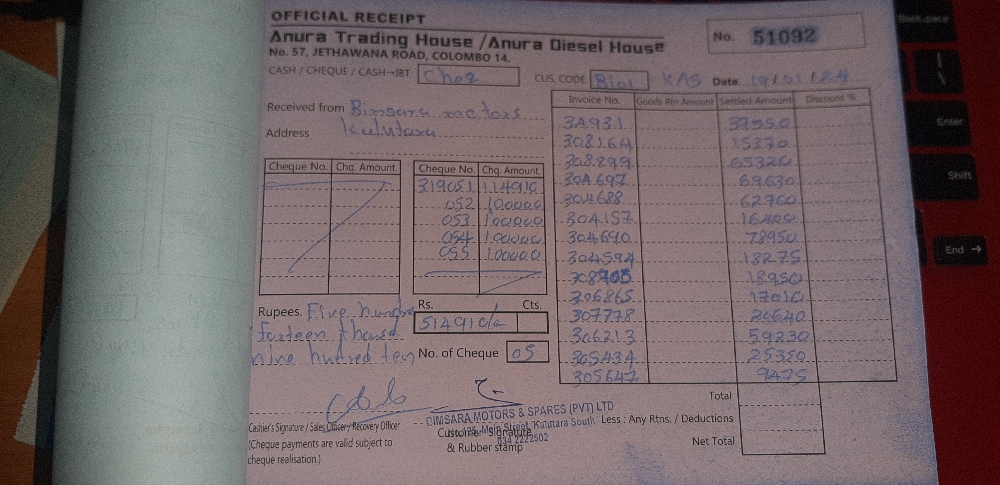 OFFICIAL RECEIPT
Anura Trading House /Anura Diesel House
No. 57, JETHAWANA ROAD, COLOMBO 14.
No. 51092
CASH / CHEQUE / CASH→IBT Cheq CUS. CODE KAS Date.
Received from Bimsara motors
Address Kalutara
Cheque No. Chq. Amount.
Cheque No. Chq. Amount.
319051 114910
052 100000
053 100000
054 100000
055 100000
Invoice No. Goods Rtn Amount Settled Amount Discount %
3A931
308164 15370
308899 65320
304697 69630
304688 62760
304157
304690 78950
304594 18275
308705 18950
306865 17010
307778
306213 59230
305434 25350
305647 9475
Rupees. Five hundre
forteen thousd
nine hundred ten
Rs. Cts.
514910/=
No. of Cheque 05
Total
Less : Any Rtns. / Deductions
Net Total
Cashier's Signature / Sales Officer / Recovery Officer
(Cheque payments are valid subject to
cheque realisation.)
Customer Signature
& Rubber stamp
DIMSARA MOTORS & SPARES (PVT) LTD
Main Street, Kalutara South
034 2222502